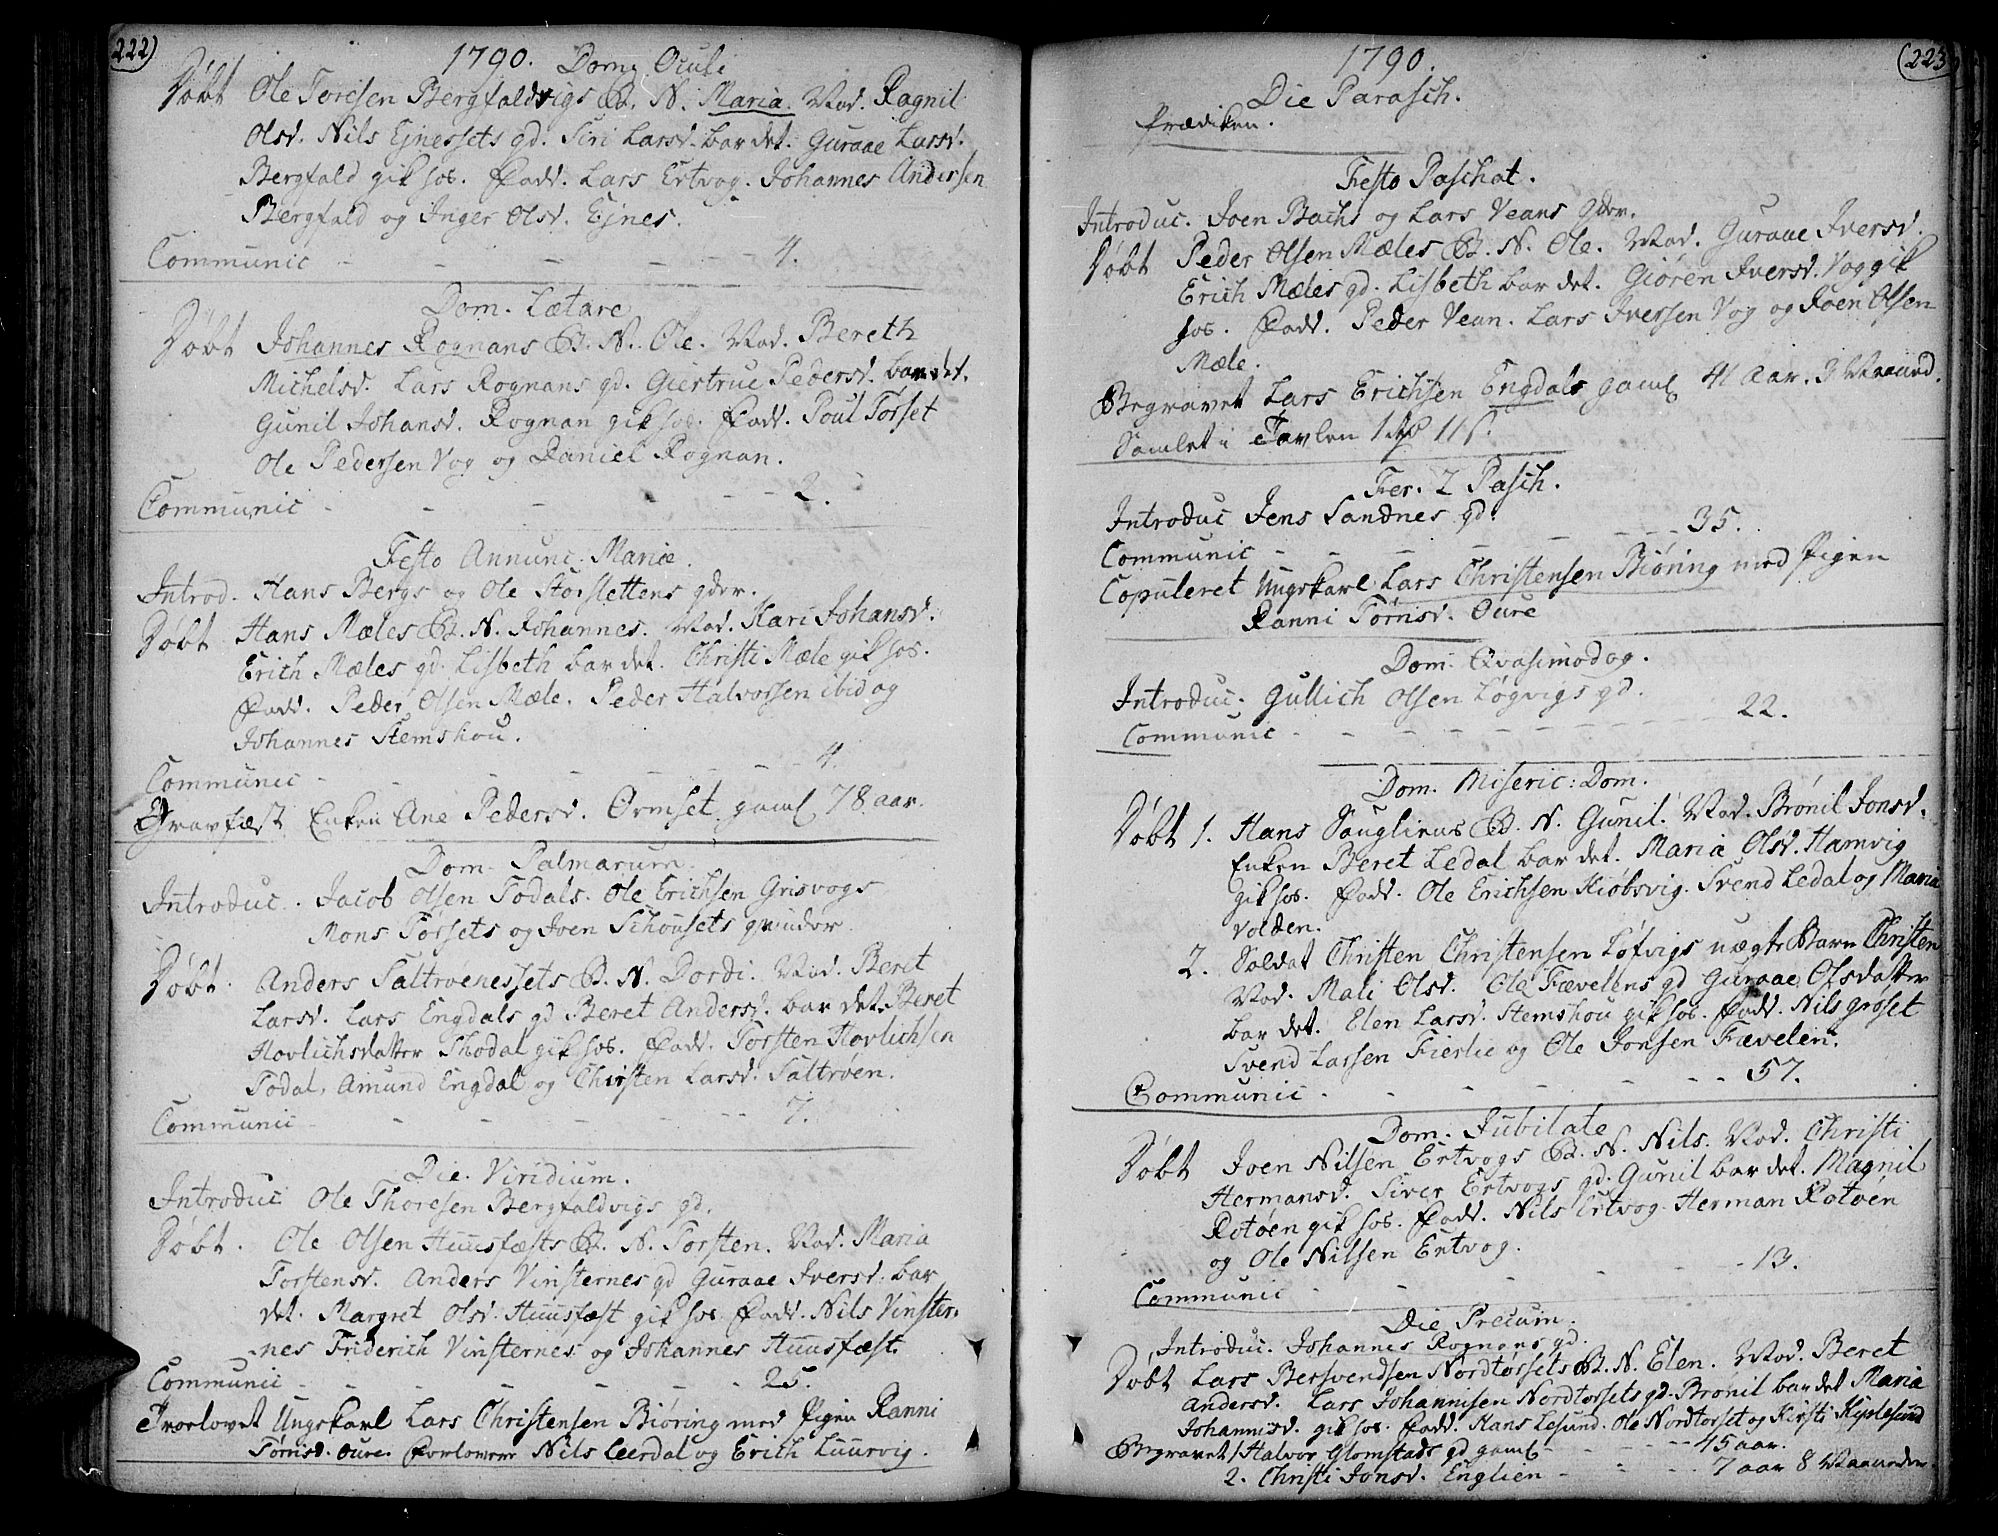 222)
1790. Dom. Oculi
Døbt Ole Toresen Bergfaldvigs B. N. Maria. Mod. Ragnil
Olsd. Nils Ejnessets qd. Siri Larsd. bar det. Guraae Larsd.
Bergfald gik hos. Fadd. Lars Ertvog. Johannes Andersen
Bergfald og Inger Olsd. Ejnes.
Communic - - - - - 4.
Dom. Lætare
Døbt Johannes Rognans B. N. Ole. Mod. Bereth
Michelsd. Lars Rognans qd. Giertrue Pedersd. bar det.
Gunil Johansd. Rognan gik hos. Fadd. Poul Torset
Ole Pedersen Vog og Daniel Rognan.
Communic - - - - - 2.
Festo Annunc. Mariæ.
Introd. Hans Bergs og Ole Storslettens qdor.
Døbt Hans Mæles B. N. Johannes. Mod. Kari Johansd.
Erich Mæles qd. Lisbeth bar det. Christi Mæle gik hos.
Fadd. Peder Olsen Mæle. Peder Halvorssen ibid og
Johannes Stemshou.
Communic - - - - - 4.
Gravfæst Enken Ane Pedersd. Ormset gaml 78 aar.
Dom. Palmarum.
Introduc. Jacob Olsen Todals. Ole Erichsen Grisvogs
Mons Tørsets og Joen Schousets qvinder.
Døbt. Anders Saltrøenessets B. N. Dordi. Mod. Beret
Larsd. Lars Engdals qd Beret Andersd. bar det. Beret
Hovlichsdatter Thodal gik hos. Fadd. Torsten Hovlichsen
Todal, Amund Engdal og Chirsten Larsd. Saltrøen.
Communic - - - - - 7.
Die. Viridium.
Introduc Ole Thoresen Bergfaldvigs qd.
Døbt. Ole Olsen Huusfæsts B. N. Torsten. Mod. Maria
Torstensd. Anders Vinsternes qd Guraae Iversd. bar
det. Margret Olsd. Huusfæst gik hos. Fadd. Nils Vinster-
nes Friderich Vinsternes og Johannes Huusfæst.
Communic - - - - - 25.
Trorlovet Ungskarl Lars Christensen Biøring med Pigen Ranni
Tørnisd. Oure. Forlovere Nils Leerdal og Erich Luurvig.
(223
1790.
Die Parasch.
Prædiken.
Festo Paschat.
Introduc. Joen Bachs og Lars Veans qdor.
Døbt Peder Olsen Mæles B. N. Ole. Mod. Guraae Iversd.
Erich Mæles qd. Lisbeth bar det. Giøren Iversd. Vog gik
hos. Fadd. Peder Vean. Lars Iversen Vog og Joen Olsen
Mæle.
Begravet Lars Erichsen Engdals gaml 41 Aar. 3 Maaned.
Samlet i Tavlen 1 11 s.
Fer. 2 Pasch.
Introduc Jens Sandnes qd.
Communic - - - - - 35.
Copuleret Ungskarl Lars Christensen Biøring med Pigen
Ranni Tørnisd. Oure
Dom. Qvasimodog.
Introduc. Gullich Olsen Løgvigs qd.
Communic - - - - - 22.
Dom. Miseric: Dom.
Døbt 1. Hans Saugliens B. N. Gunil. Mod. Brønil Jonsd.
Enken Beret Ledal bar det. Maria Olsd. Hamvig
gik hos. Fadd. Ole Erichsen Kiøbsvig. Svend Ledal og Maria
Volden.
2. Soldat Christen Christensen Løfvigs uægte Barn Christen
Mod. Mali Olsd. Ole Fævelens qd Guraae Olsdatter
bar det. Elen Larsd. Stemshou gik hos. Fadd. Nils Groset
Svend Larssen Fierlie og Ole Jonsen Fævelen.
Communic - - - - - 57.
Dom. Jubilate
Døbt Joen Nilsen Ertvogs B. N. Nils. Mod. Christi
Hermansd. Siver Ertvogs qd. Gunil bar det. Magnil
Rotøen gik hos. Fadd. Nils Ertvog. Herman Rotøen
og Ole Nilssen Ertvog.
Communic - - - - - 13.
Die Precum.
Introduc. Johannes Rognans qd.
Døbt Lars Bersvendsen Nordtørsets B. N. Elen. Mod. Beret
Andersd. Lars Johannisen Nordtorsets qd. Brønil bar det Maria
Johannisd. gik hos. Fadd. Hans Lesund. Ole Nordtorset og Kirsti
Begravet 1 Halvor Glomstads qd gaml - - - 45 aar.
2. Christi Jonsd. Englien - - - 7 aar 8 Maaneder.